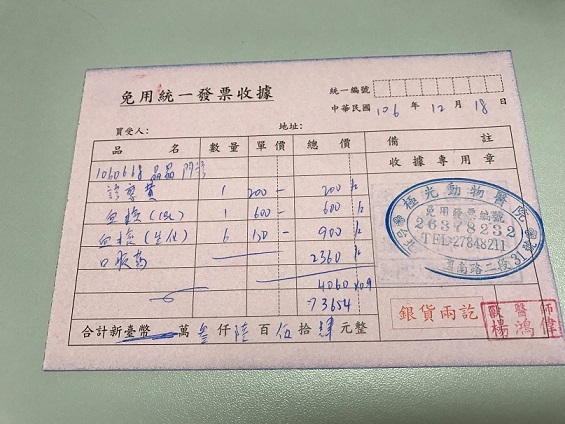 免用統一發票收據
統一編號
中華民國 106 年 12 月 18 日
買受人: 地址:
品名 數量 單價 總價 備註
收據專用章
1060618 晶晶 門診
診察費 1 200- 200
血檢(CBC) 1 600- 600
血檢(生化) 6 150- 900
口服藥 2360
4060×0.9
=3654
合計新臺幣 萬 叁仟 陸百 伍拾 肆元整
極光動物醫院
免用發票編號
26378232
TEL:27848211
南路二段31號
銀貨兩訖
獸醫師
楊鴻偉